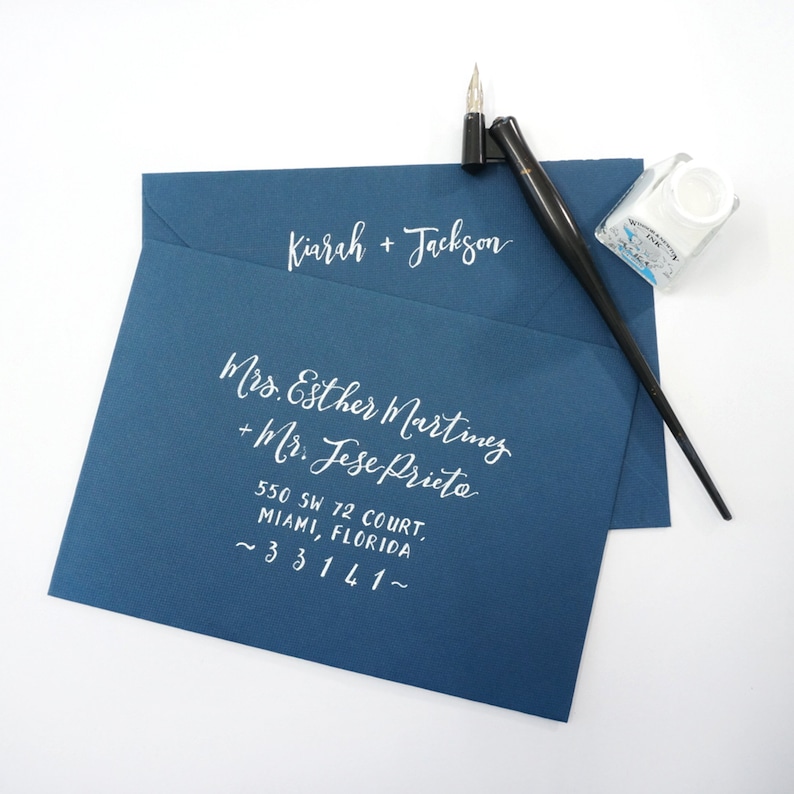 Kiarah + Jackson
Mrs. Esther Martinez
+ Mr. Jese Prieto
550 SW 72 COURT,
MIAMI, FLORIDA
~ 3 3 1 4 1 ~
WINSOR & NEWTON
INK